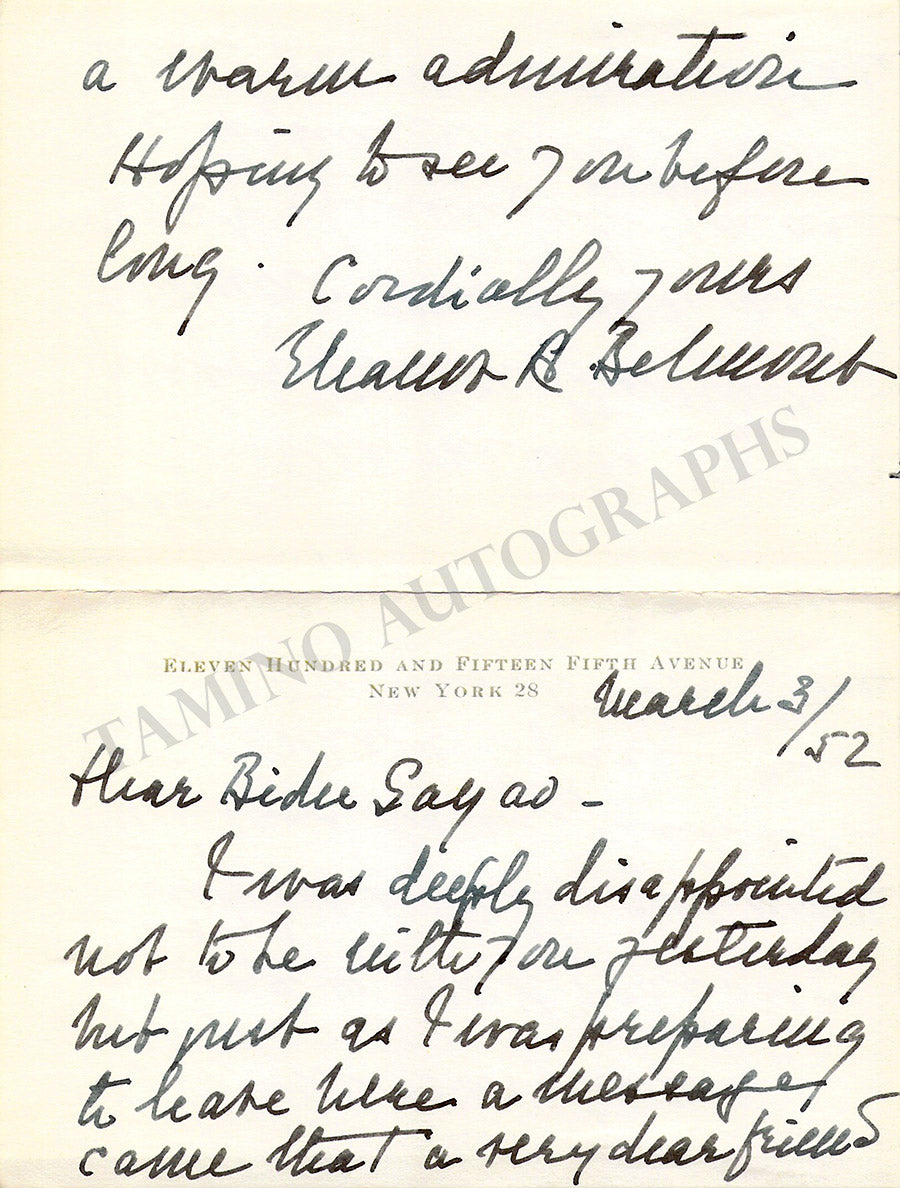 a warm admiration
Hoping to see you before
long.
Cordially yours
Eleanor R. Belmont
TAMINO AUTOGRAPHS
ELEVEN HUNDRED AND FIFTEEN FIFTH AVENUE
NEW YORK 28
March 3/52
Dear Bidu Sayao -
I was deeply disappointed
not to be with you yesterday
but just as I was preparing
to leave here a message
came that a very dear friend